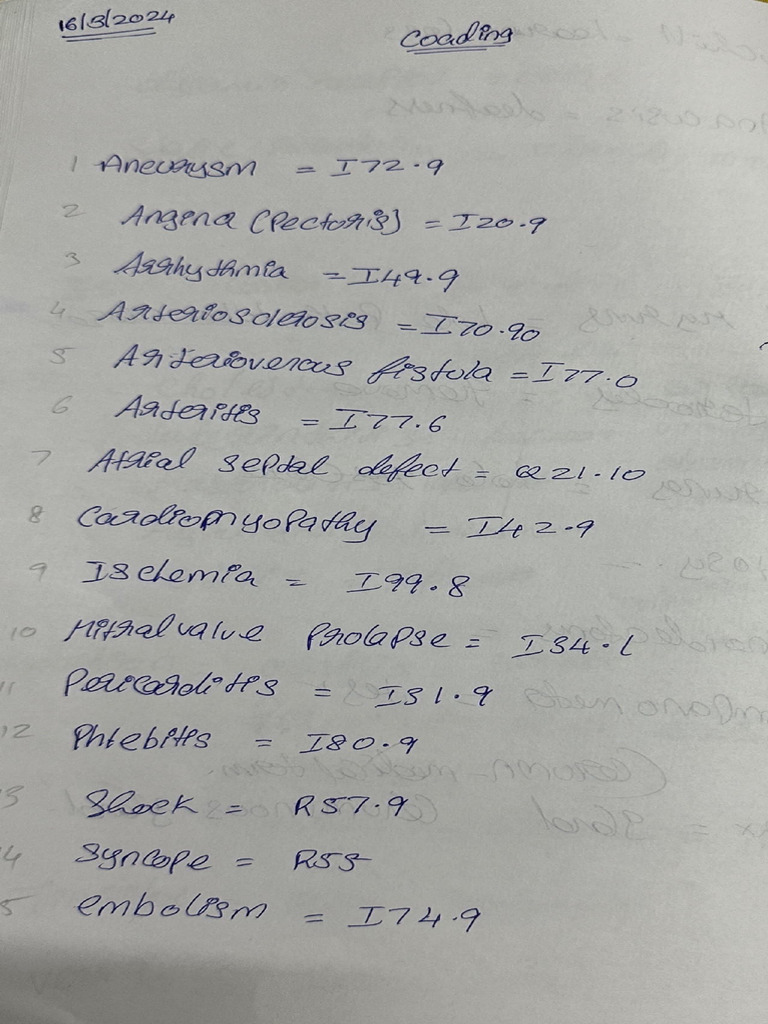 16/3/2024
Coading
1 Aneurysm = I72.9
2 Angena (Pectoris) = I20.9
3 Arrhythmia = I49.9
4 Arteriosclerosis = I70.90
5 Arteriovenous fistula = I77.0
6 Arteritis = I77.6
7 Atrial septal defect = Q21.10
8 Cardiomyopathy = I42.9
9 Ischemia = I99.8
10 Mitral valve Prolapse = I34.1
11 Pericarditis = I31.9
12 Phlebitis = I80.9
3 Shock = R57.9
4 Syncope = R55
5 embolism = I74.9